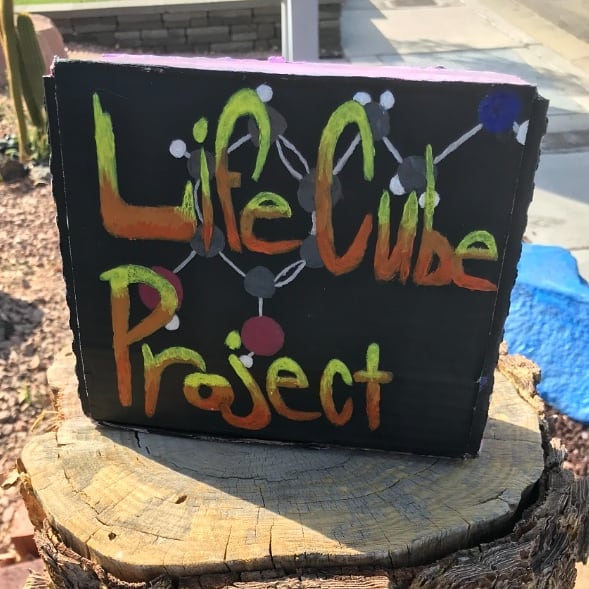 Life Cube
Project